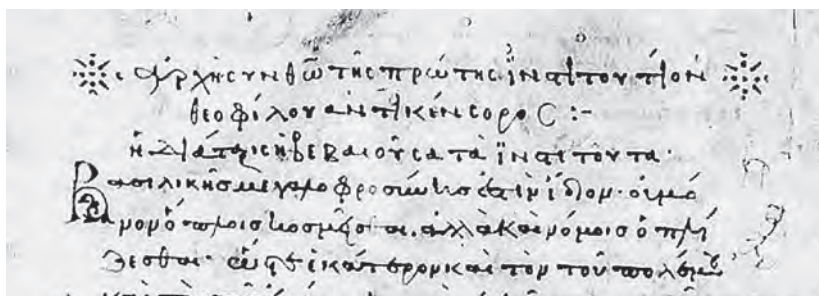 Ἀρχὴ σὺν θῶ τῆς πρώτης ἰνστιτουτίον
θεοφίλου ἀντικένσορος :-
ἡ διάταξις ἡ βεβαιοῦσα τὰ ἰνστιτοῦτα·
Βασιλικῆς μεγαλοφροσύνης ἐστὶν ἴδιον· οὐ μό
νον ὅπλοις κοσμεῖσθαι. ἀλλὰ καὶ νόμοις ὁπλί
ζεσθαι· ὥστε ἑκάτερον καὶ τὸν τοῦ πολέμου